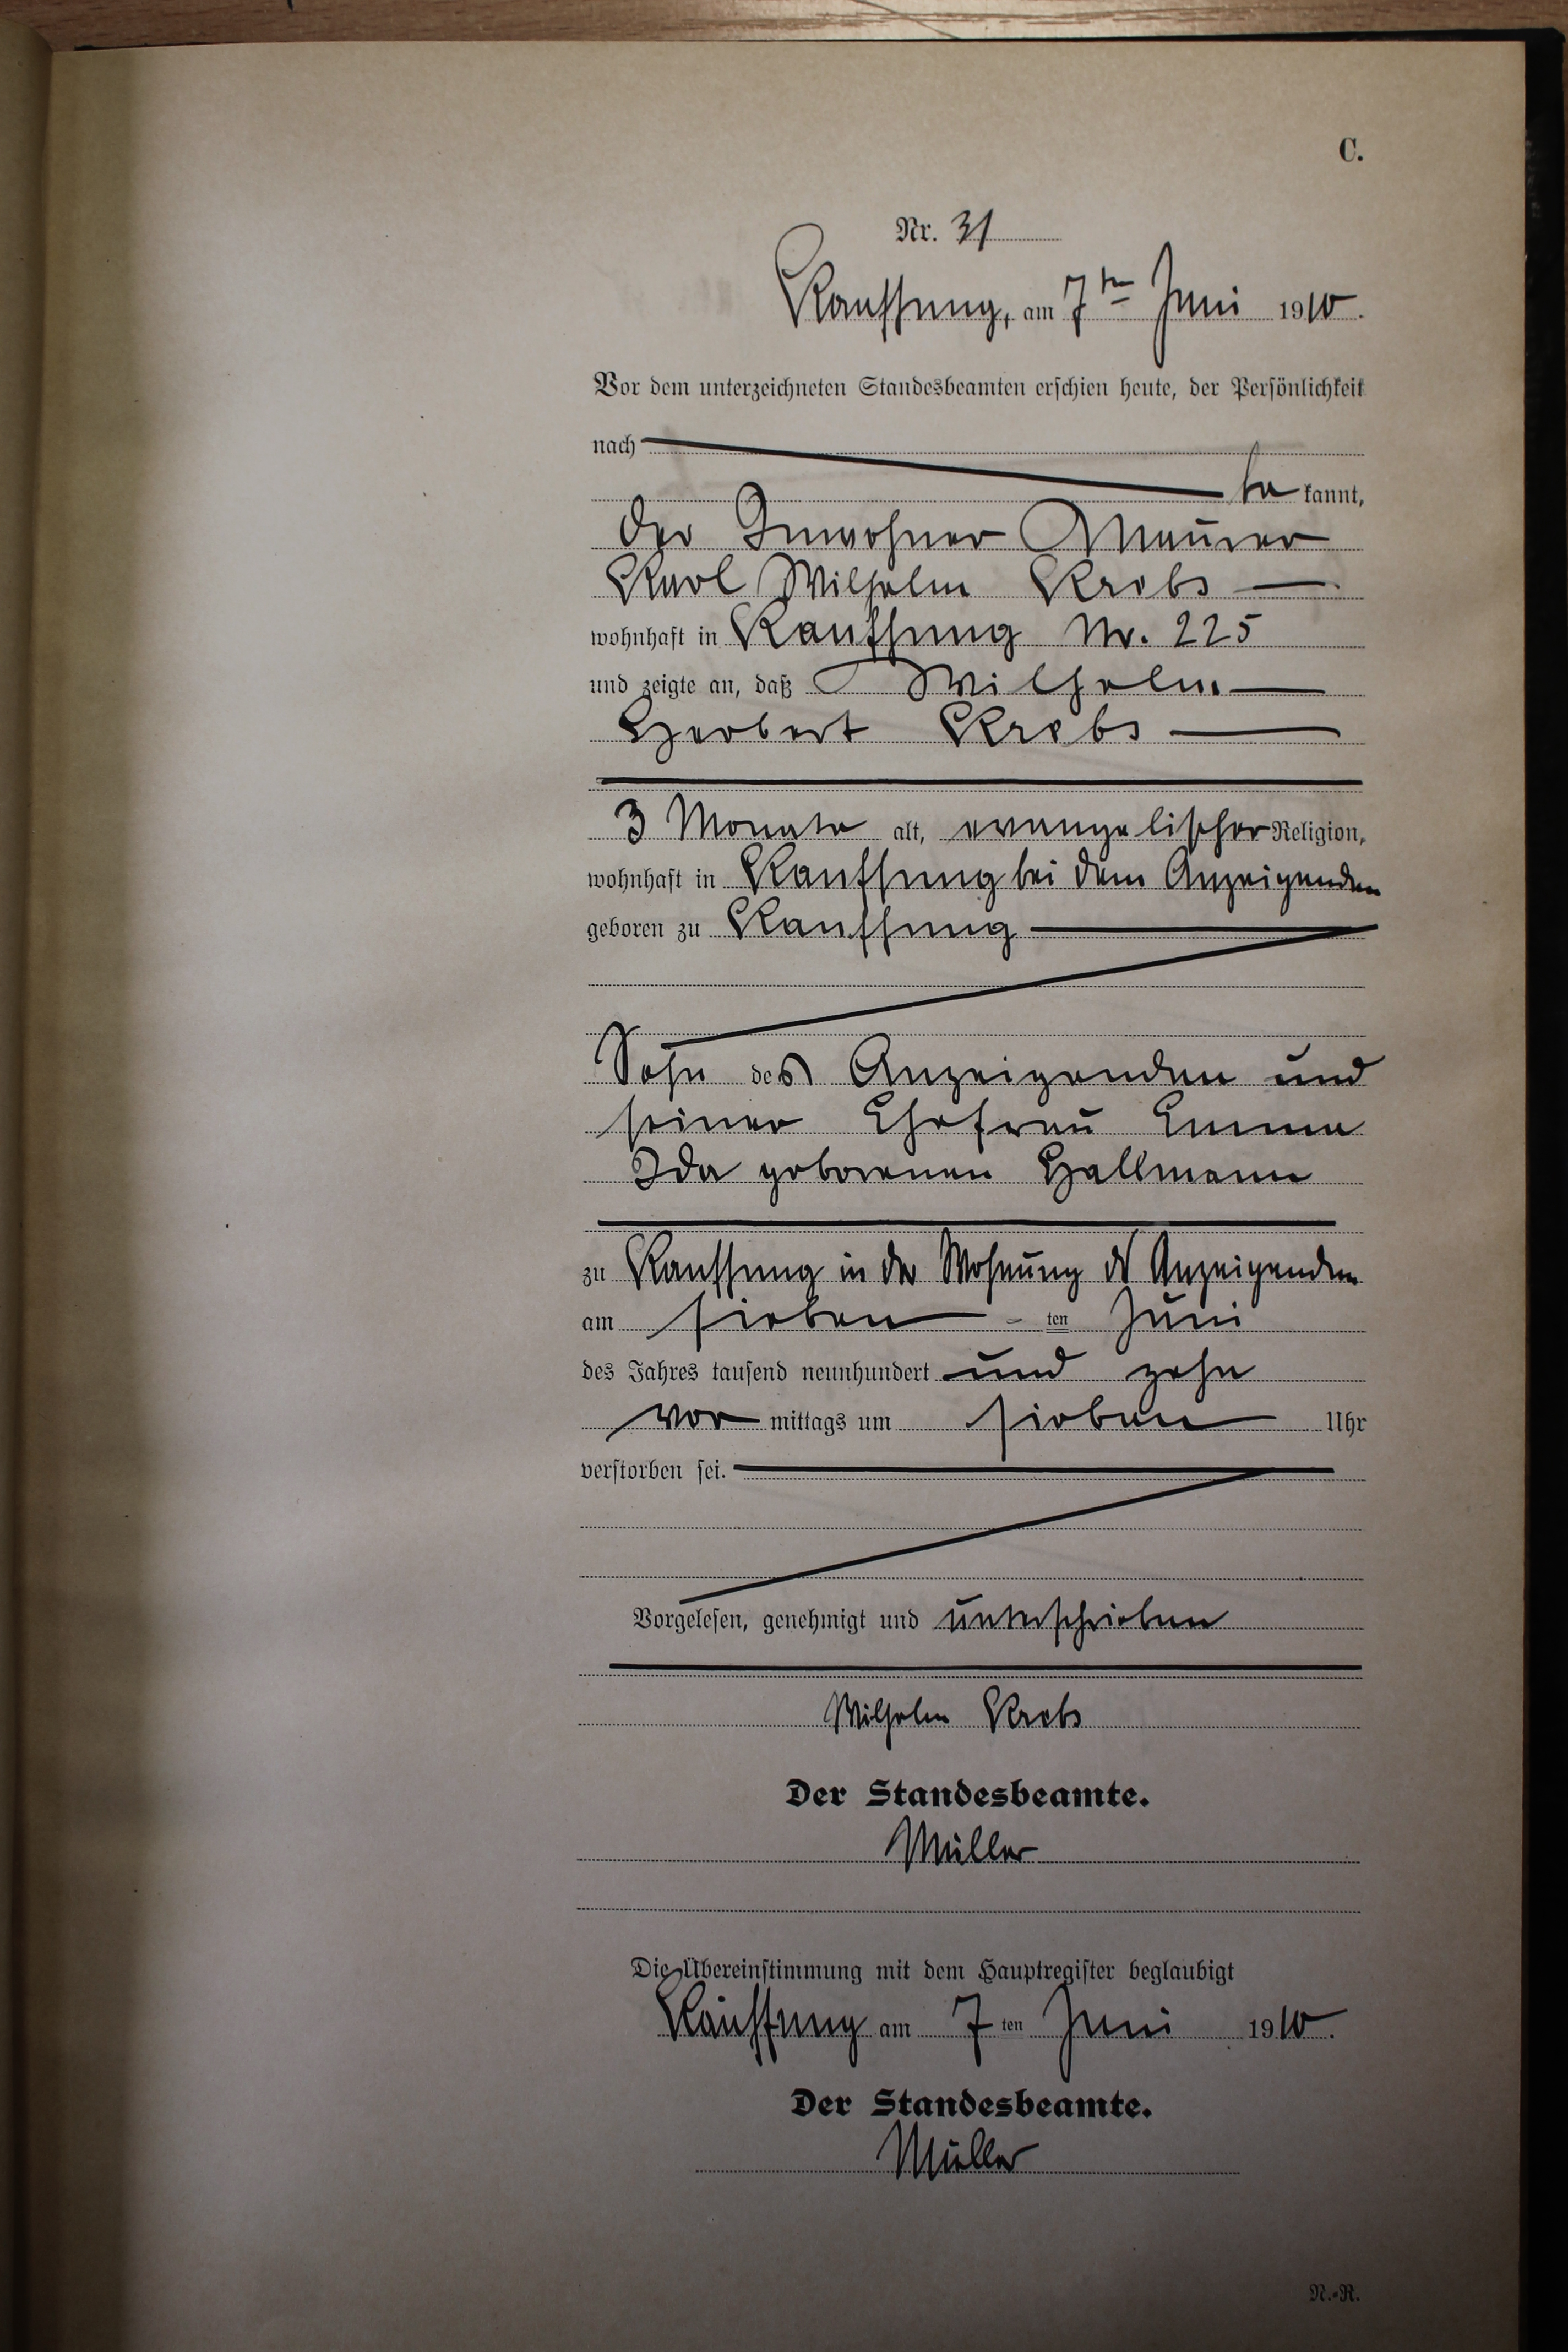 C.
Nr. 31
Kauffung, am 7ten Juni 1910.
Vor dem unterzeichneten Standesbeamten erschien heute, der Persönlichkeit
nach
be kannt,
der Inwohner Maurer
Karl Wilhelm Krebs
wohnhaft in Kauffung Nr. 225
und zeigte an, daß Wilhelm
Herbert Krebs
3 Monate alt, evangelischer Religion,
wohnhaft in Kauffung bei dem Anzeigenden
geboren zu Kauffung
Sohn des Anzeigenden und
seiner Ehefrau Emma
Ida geborenen Hallmann
zu Kauffung in der Wohnung des Anzeigenden
am sieben ten Juni
des Jahres tausend neunhundert und zehn
vor mittags um sieben Uhr
verstorben sei.
Vorgelesen, genehmigt und unterschrieben
Wilhelm Krebs
Der Standesbeamte.
Müller
Die Übereinstimmung mit dem Hauptregister beglaubigt
Kauffung am 7 ten Juni 1910.
Der Standesbeamte.
Müller
N.-R.